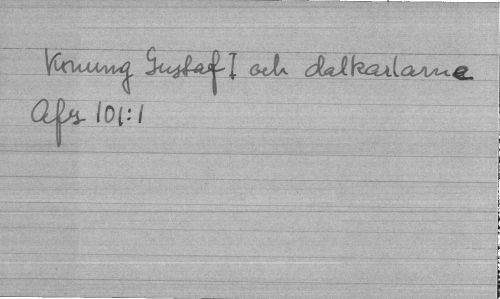 Konung Gustaf I och dalkarlarne
Afs 101:1